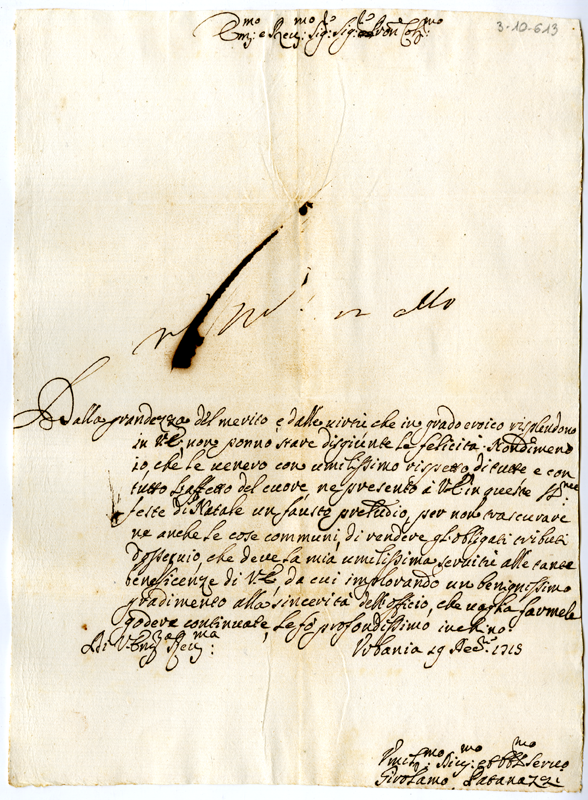 3-10-613
Em.mo e Rev.mo Sig.r Sig.r Pron Col.mo
Dalla grandezza del merito e dalle virtù che in grado eroico risplendono
in V.E. non ponno stare disgiunte le felicità. Nondimeno
io, che le venero con umilissimo rispetto di tutte e con
tutto l'affetto del cuore ne presento à V.E. in queste S.me
feste di Natale un fausto preludio, per non trascurare
ne anche le cose communi, di rendere gl'obligati tributi
d'ossequio, che deve la mia umilissima servitù alle tante
beneficenze di V.E., da cui implorando un benignissimo
gradimento alla sincerità dell'officio, che vaglia farmela
godere continuate, le fò profondissimo inchino.
Di V. Em.za Rev.ma
Urbania 19 Xbre 1715
Umil.mo Div.mo et Obl.mo Serv.e
Girolamo